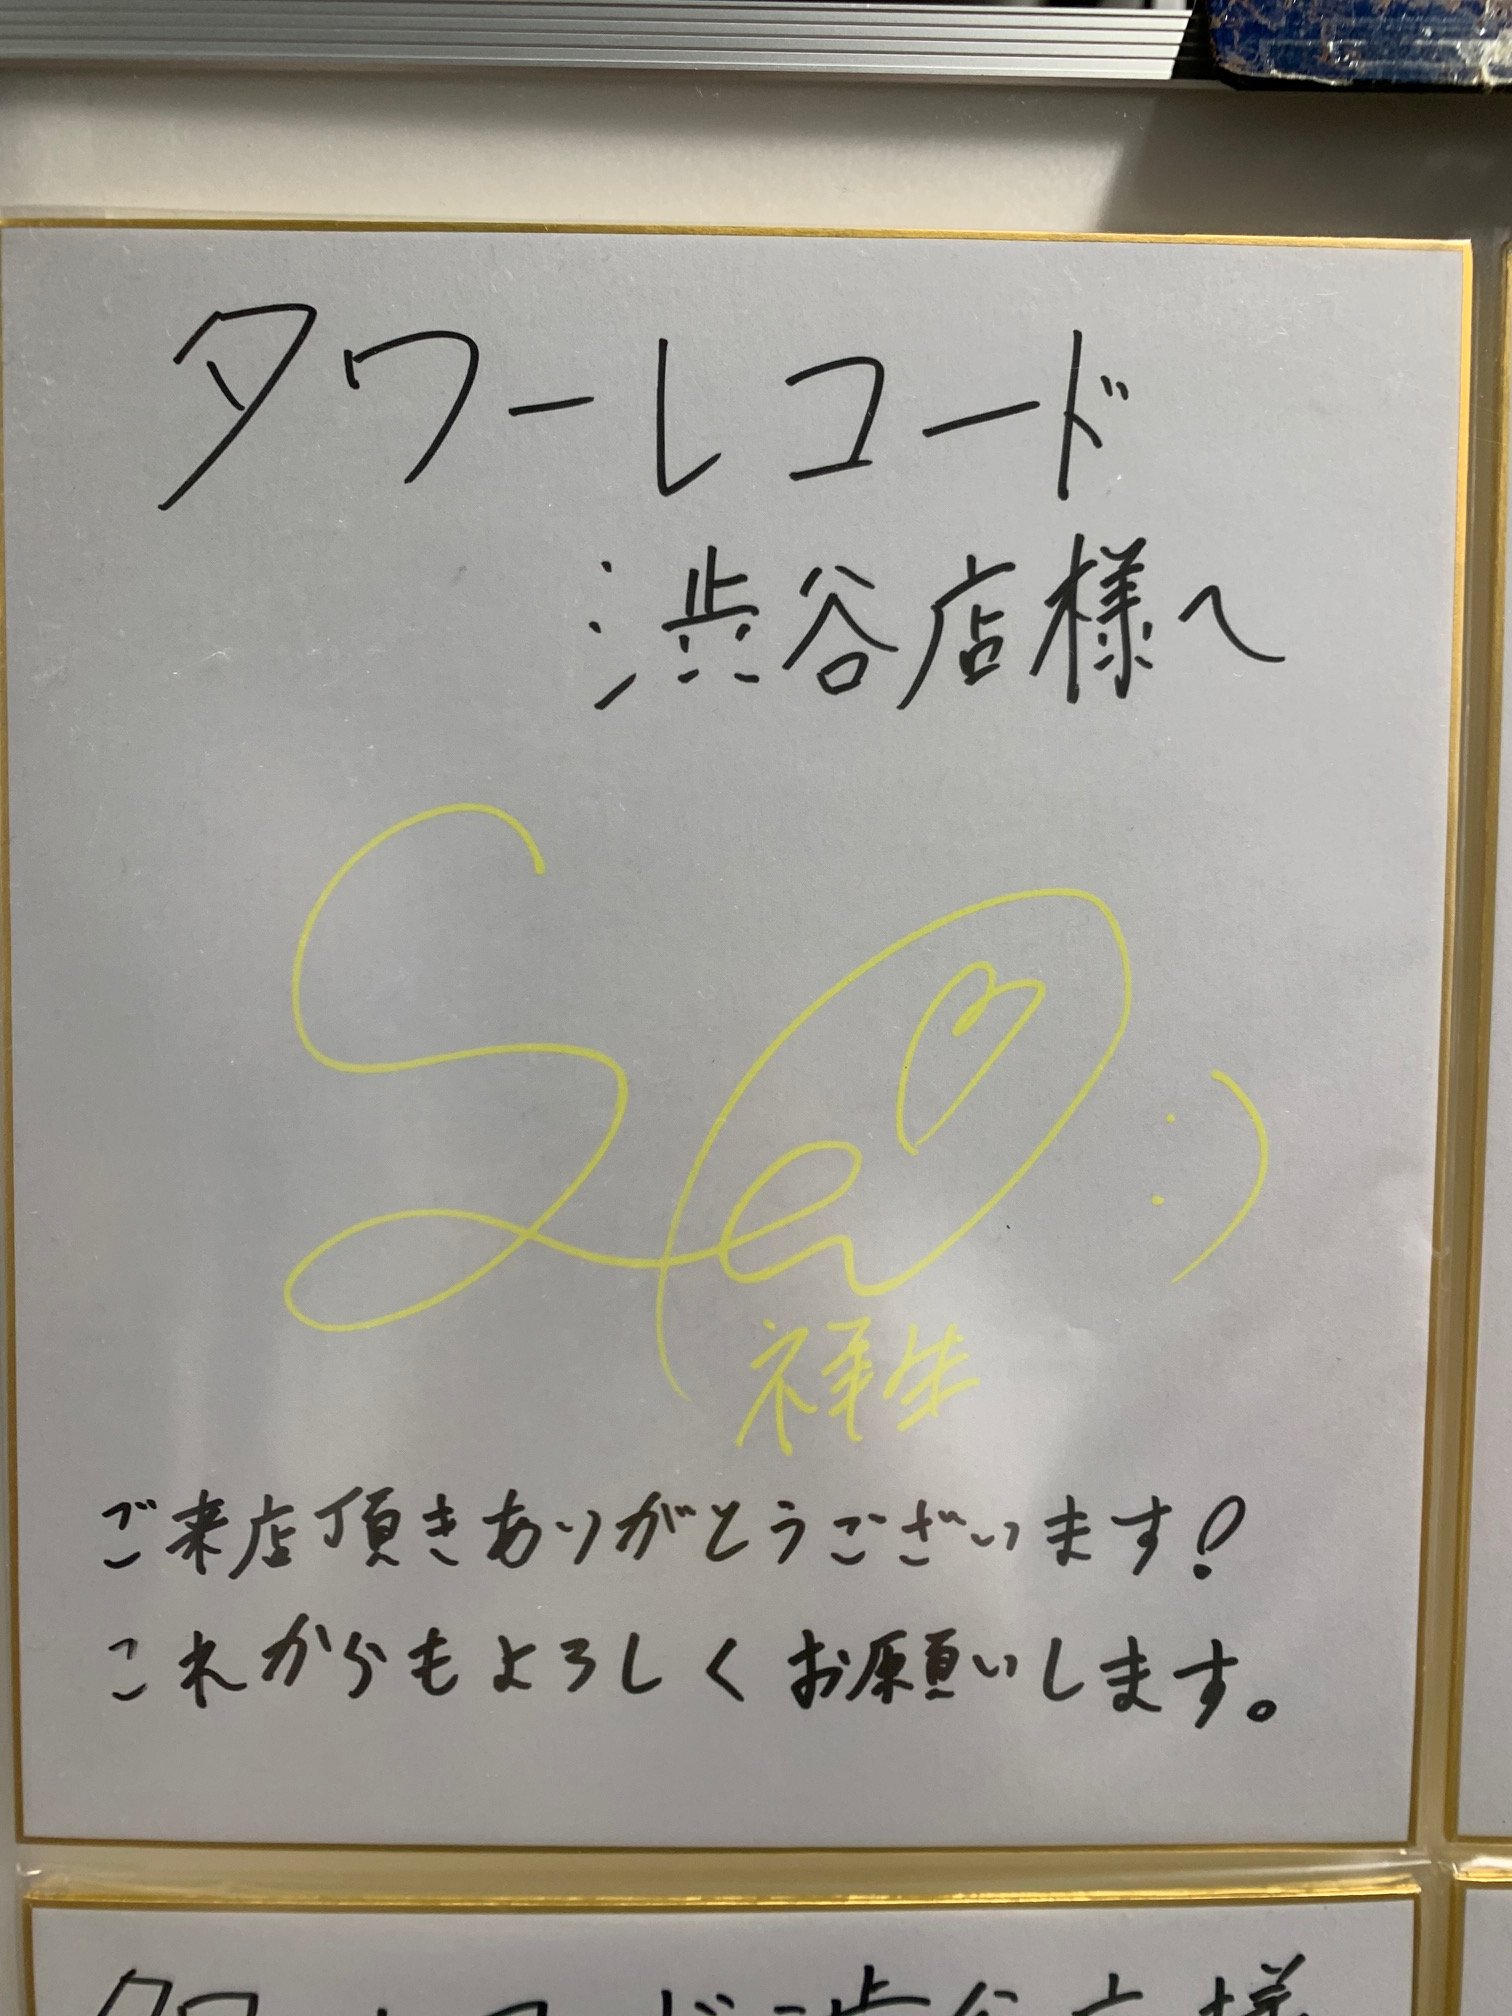 タワーレコード
渋谷店様へ
:)
祥生
ご来店頂きありがとうございます!
これからもよろしくお願いします。
タワーレコード渋谷店様